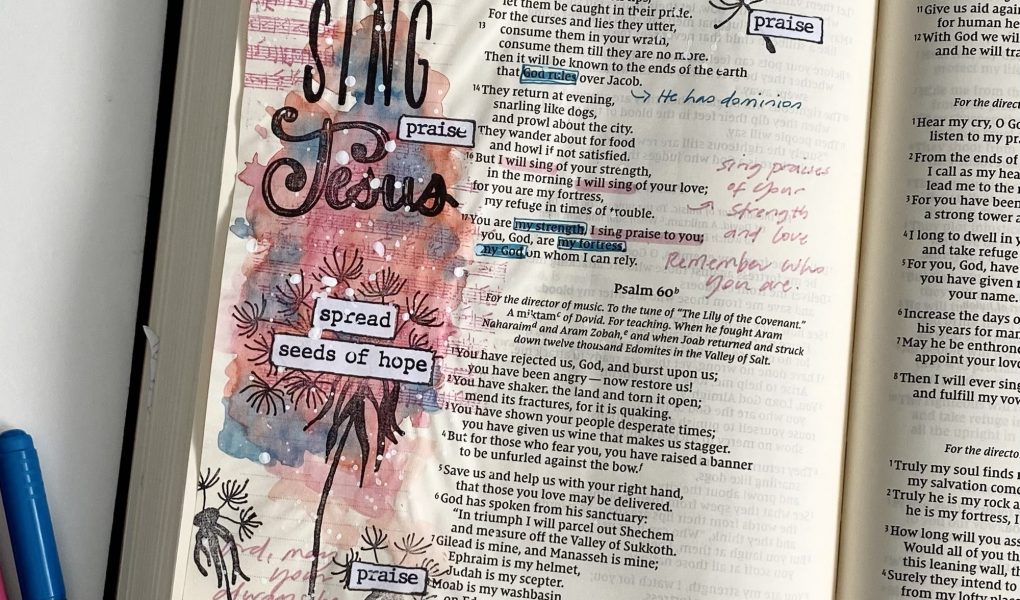 SING
praise
Jesus
spread
seeds of hope
praise
let them be caught in their pride.
For the curses and lies they utter,
13 consume them in your wrath,
consume them till they are no more.
Then it will be known to the ends of the earth
that God rules over Jacob.
14 They return at evening,
snarling like dogs,
and prowl about the city.
They wander about for food
and howl if not satisfied.
16 But I will sing of your strength,
in the morning I will sing of your love;
for you are my fortress,
my refuge in times of trouble.
17 You are my strength, I sing praise to you;
you, God, are my fortress,
my God on whom I can rely.
praise
He has dominion
sing praises
of your
strength
and love
Remember who
you are.
Psalm 60b
For the director of music. To the tune of “The Lily of the Covenant.”
A miktamc of David. For teaching. When he fought Aram
Naharaimd and Aram Zobah,e and when Joab returned and struck
down twelve thousand Edomites in the Valley of Salt.
1 You have rejected us, God, and burst upon us;
you have been angry — now restore us!
2 You have shaken the land and torn it open;
mend its fractures, for it is quaking.
3 You have shown your people desperate times;
you have given us wine that makes us stagger.
4 But for those who fear you, you have raised a banner
to be unfurled against the bow.f
5 Save us and help us with your right hand,
that those you love may be delivered.
6 God has spoken from his sanctuary:
“In triumph I will parcel out Shechem
and measure off the Valley of Sukkoth.
7 Gilead is mine, and Manasseh is mine;
Ephraim is my helmet,
Judah is my scepter.
Moab is my washbasin
on
may
your
11 Give us aid again
for human he
12 With God we wil
and he will tra
For the direct
1 Hear my cry, O Go
listen to my pr
2 From the ends of
I call as my hea
lead me to the r
3 For you have been
a strong tower a
4 I long to dwell in y
and take refuge
5 For you, God, have
you have given m
your name.
6 Increase the days o
his years for man
7 May he be enthrone
appoint your love
8 Then I will ever sing
and fulfill my vow
For the directo
1 Truly my soul finds r
my salvation come
2 Truly he is my rock a
he is my fortress, I
3 How long will you ass
Would all of you th
this leaning wall, th
4 Surely they intend to
from my lofty place